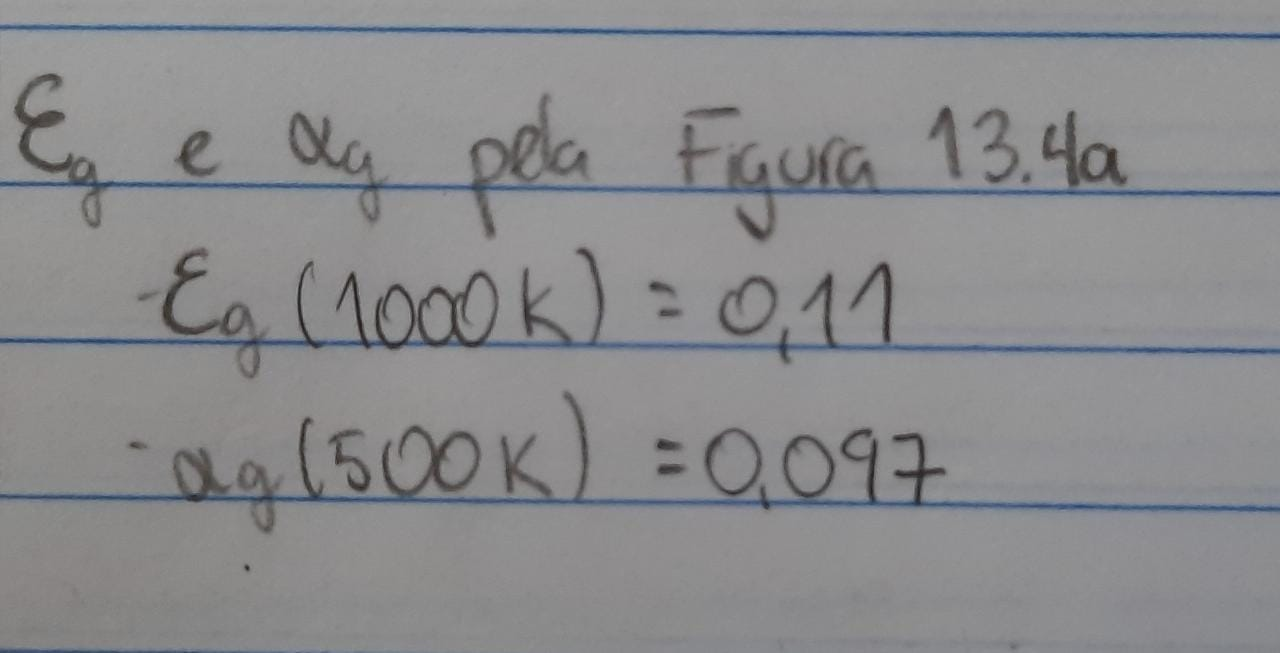 Ɛg e αg pela Figura 13.4a
- Ɛg (1000K) = 0,11
- αg (500K) = 0,097